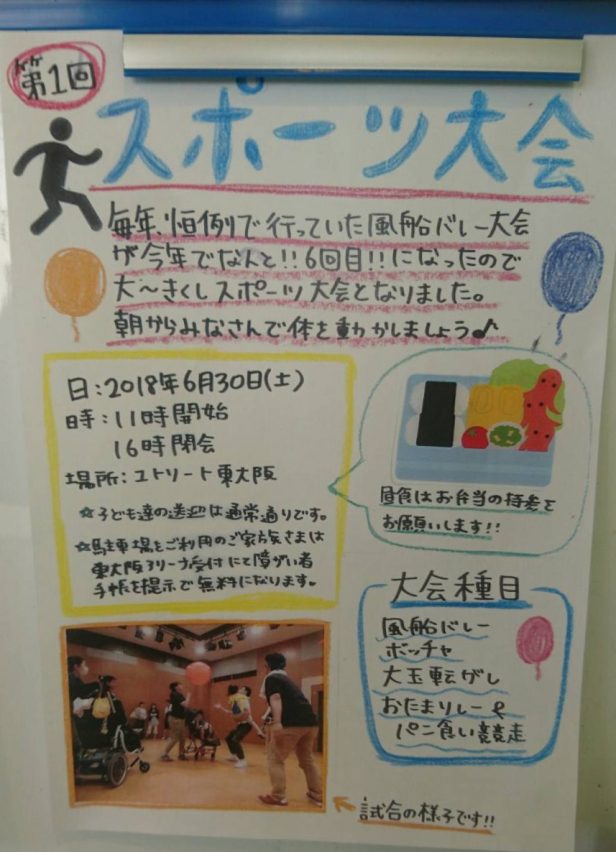 第1回
スポーツ大会
毎年、恒例で行っていた風船バレー大会
が今年でなんと!!6回目!!になったので
大〜きくしスポーツ大会となりました。
朝からみなさんで体を動かしましょう♪
日:2018年6月30日(土)
時:11時開始
16時閉会
場所:ユトリート東大阪
☆子ども達の送迎は通常通りです。
☆駐車場をご利用のご家族さまは
東大阪アリーナ受付にて障がい者
手帳を提示で無料になります。
昼食はお弁当の持参を
お願いします!!
大会種目
風船バレー
ボッチャ
大玉転がし
おたまリレー&
パン食い競走
試合の様子です!!